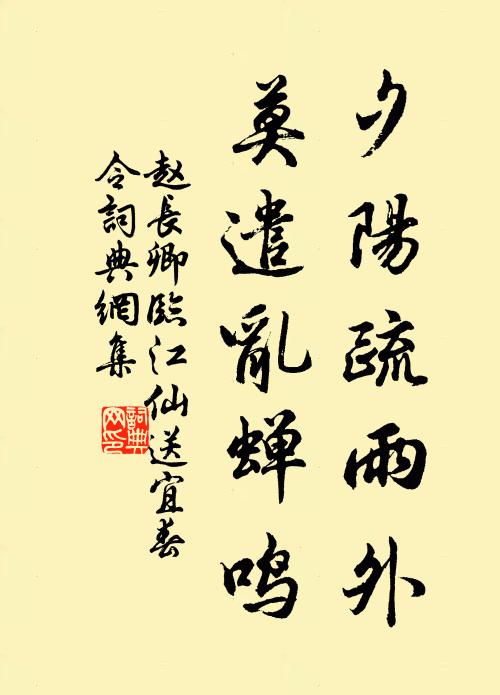 夕陽疏雨外
莫遣亂蟬鳴
赵長卿臨江仙送宜春
令詞典網集
詞典
网印